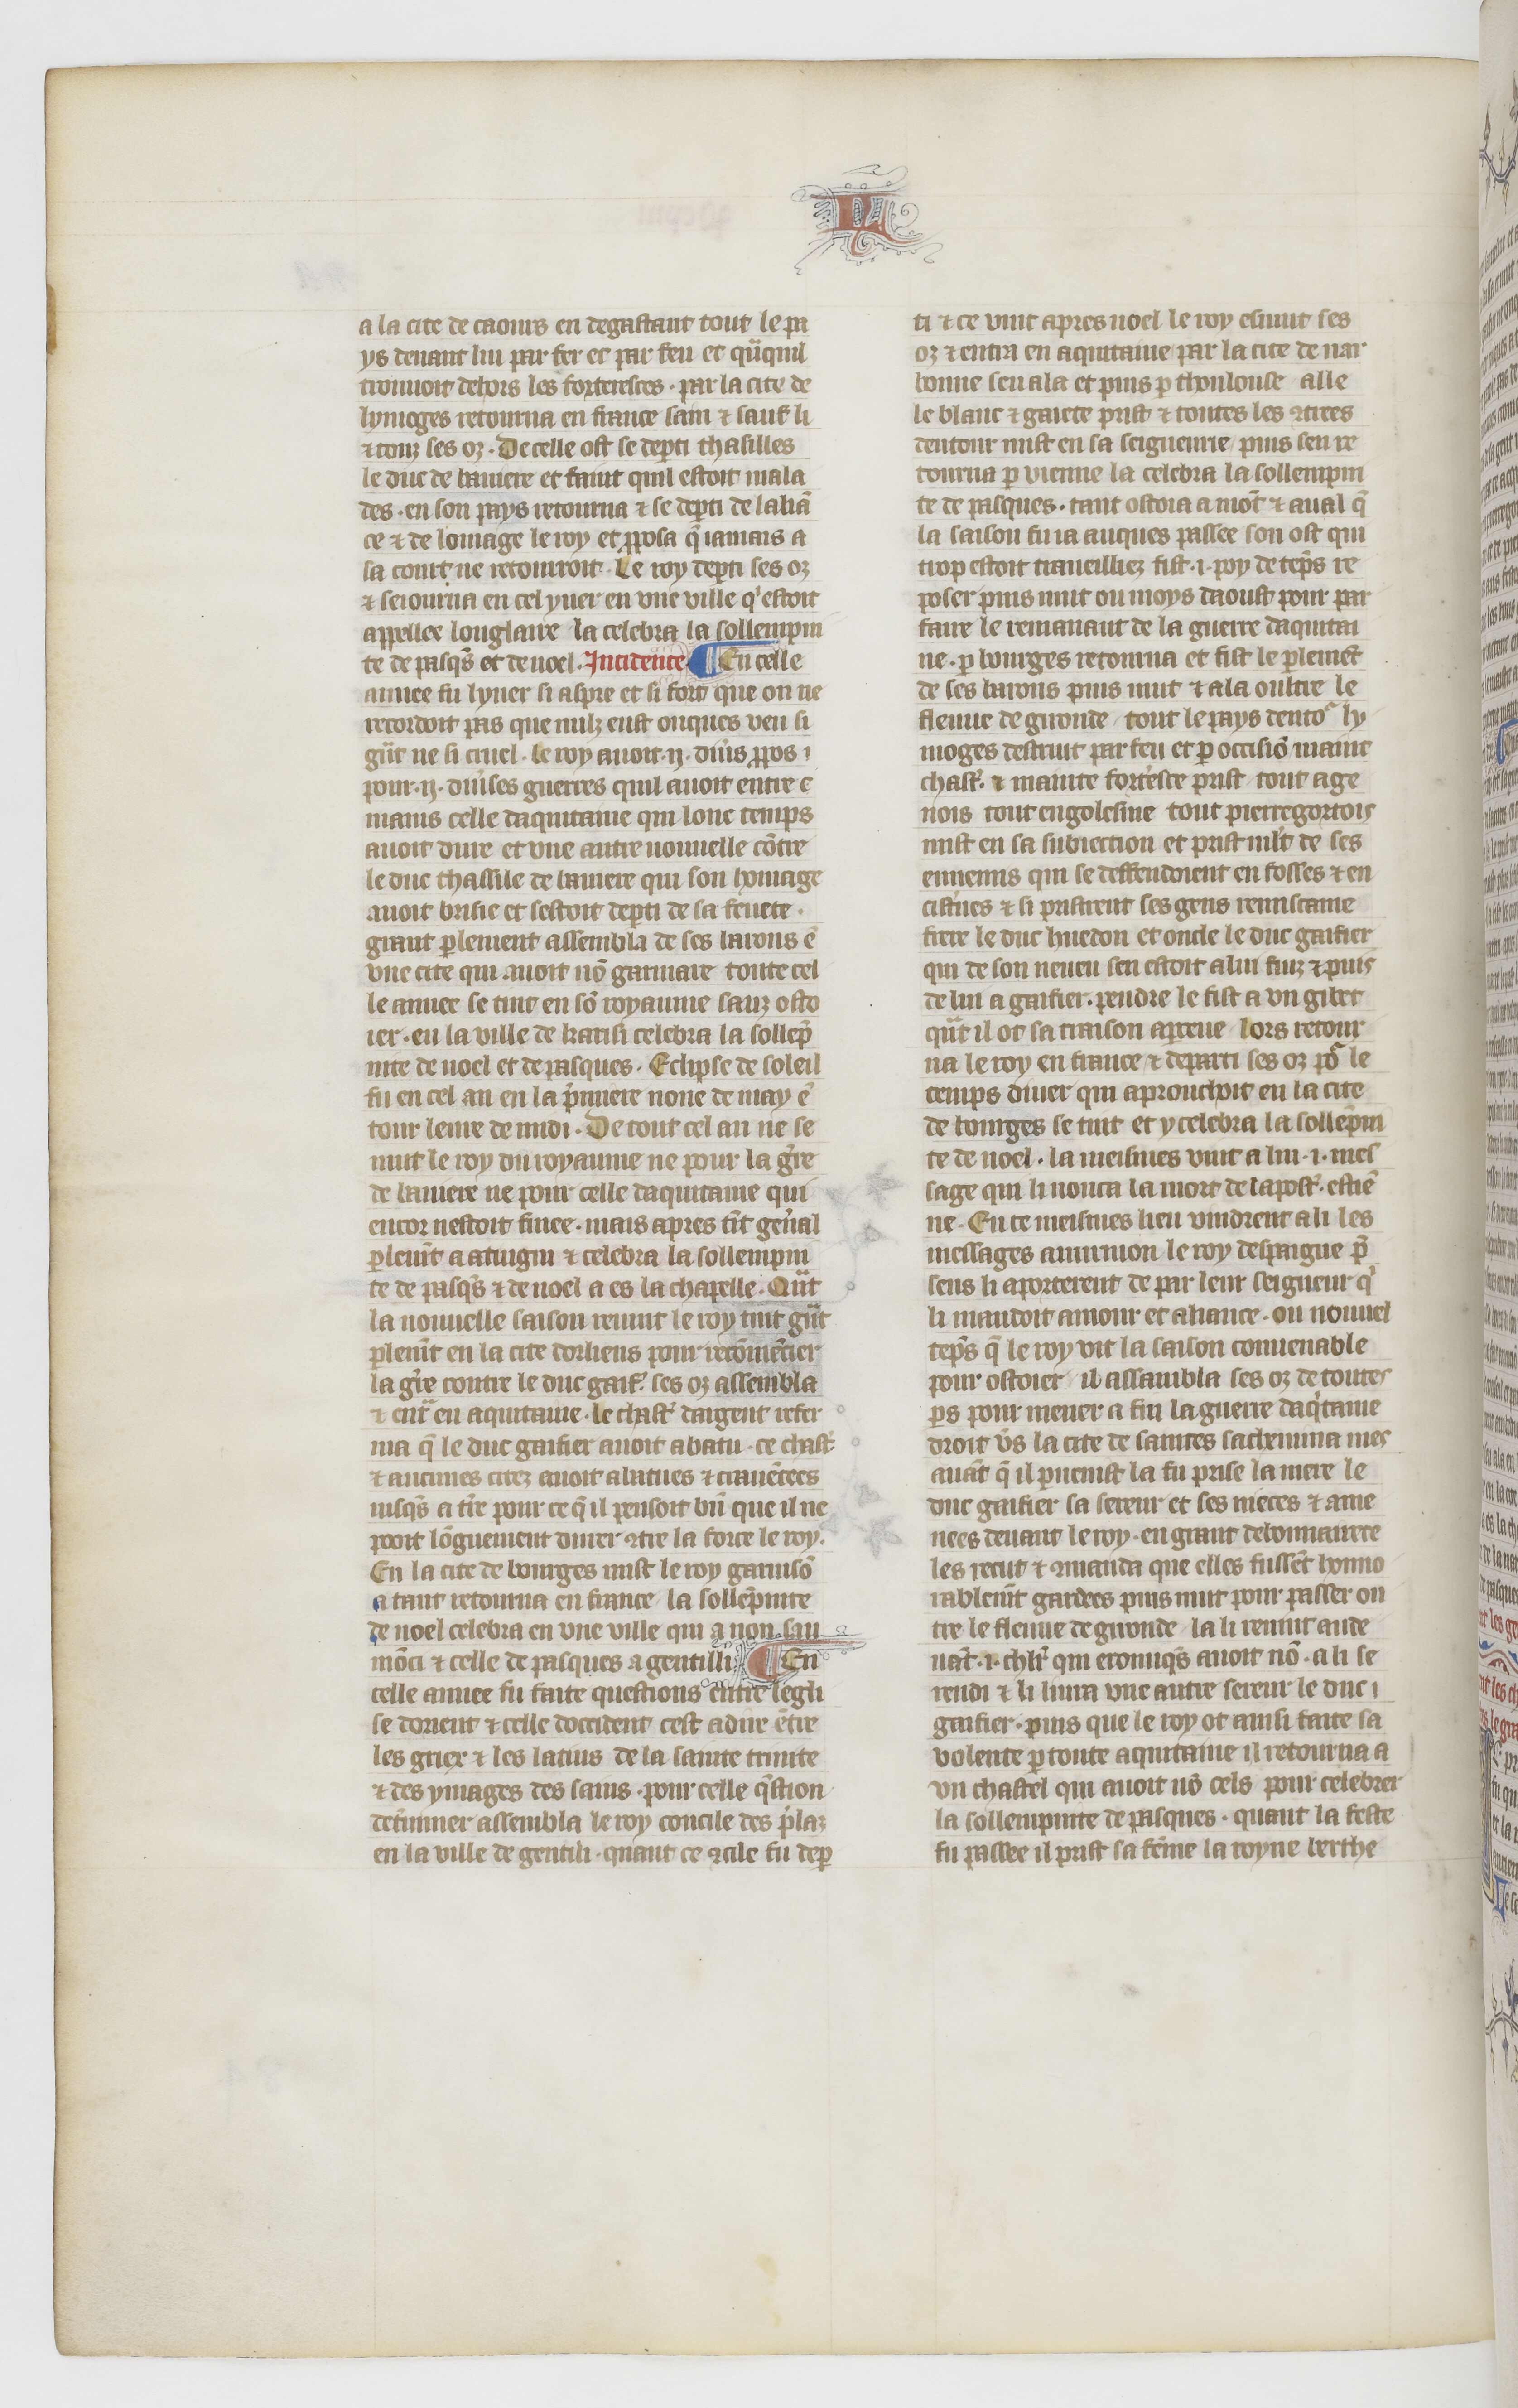 LI
a la cite de caours en degastant tout le pa
ys deuant lui par fer et par feu et q̃nquil
trouuoit dehors les forteresces · par la cite de
lymoges retourna en france sain ⁊ sauf li
⁊ touz ses oz · De celle ost se dep̱ti thasilles
le duc de bauiere et faint quil estoit mala
des · en son pays retourna ⁊ se dep̱ti de laliā
ce ⁊ de lomage le roy et ꝓposa q̃ iamais a
sa court ne retourroit · Le roy dep̱ti ses oz
⁊ seiourna en cel yuer en vne ville q'estoit
appellee longlaire la celebra la sollempni
te de pasq̃s et de noel · Incidence ¶ En celle
annee fu lyuer si aspre et si fort que on ne
recordoit pas que nulz eust onques veu si
gñt ne si cruel · le roy auoit · ij · diu̾s ꝓpos
pour · ij · diu̾ses guerres quil auoit entre
mains celle daquitaine qui lonc temps
auoit dure et vne autre nouuelle cōtre
le duc thassile de bauiere qui son homage
auoit brisie et sestoit dep̱ti de sa feuete ·
grant p̱lement assembla de ses barons ē
vne cite qui auoit nō garmaie toute cel
le annee se tint en sō royaume sanz osto
ier · en la ville de Ratisi celebra la sollep̄
nite de noel et de pasques · Eclipse de soleil
fu en cel an en la p̾miere none de may ē
tour leure de midi · De tout cel an ne se
mut le roy du royaume ne pour la g̾re
de bauiere ne pour celle daquitaine qui
encor nestoit finee · mais apres tīt gen̾al
p̱lemēt a atuigni ⁊ celebra la sollempni
te de pasq̃s ⁊ de noel a es la chapelle · Q̃nt
la nouuelle saison reuint le roy tint gñt
p̱lemēt en la cite dorliens pour recōmēcier
la g̾re contre le duc gaif̾ · ses oz assembla
⁊ ent̾ en aquitaine · le chast̾ dargent refer
ma q̃ le duc gaifier auoit abatu · ce chast̾ ·
⁊ aucunes citez auoit abatues ⁊ crauētees
iusq̃s a t̾re pour ce q̃ il pensoit biē que il ne
poit lōguement durer ꝯtre la force le roy ·
En la cite de bourges mist le roy garnisō
a tant retourna en france la sollep̄nite
de noel celebra en vne ville qui a non sau
mōci ⁊ celle de pasques a gentilli ¶ En
celle annee fu faite questions entre legli
se dorient ⁊ celle doccident cest adire ētre
les griex ⁊ les latins de la sainte trinite
⁊ des ymages des sains · pour celle q̃stion
det̾miner assembla le roy concile des p̾laz
en la ville de gentili · quant ce ꝯcile fu dep̱
ti ⁊ ce vint apres noel le roy esmut ses
oz ⁊ entra en aquitaine par la cite de nar
bonne sen ala et puis p̱ thoulouse alle
le blanc ⁊ gaiete prist ⁊ toutes les ꝯtrees
dentour mist en sa seigneurie puis sen re
tourna p̱ vienne la celebra la sollempni
te de pasques · tant ostoia a mōt ⁊ aual q̃
la saison fu ia auques passee son ost qui
trop estoit traueilliez fist · i · poy de tēps re
poser puis mut ou moys daoust pour par
faire le remanant de la guerre daquitai
ne · p̱ bourges retourna et fist le p̱lement
de ses barons puis mut ⁊ ala oultre le
fleuue de gironde tout le pays dento͛ ly
moges destruit par feu et p̱ occisiō maint
chast̾ · ⁊ mainte fort̾esce prist tout age
nois tout engolesme tout pierregortois
mist en sa subiection et prist ml̾t de ses
ennemis qui se deffendoient en fosses ⁊ en
cist̾nes ⁊ si pristrent ses gens remistaine
frere le duc huedon et oncle le duc gaifier
qui de son neueu sen estoit a lui fuiz ⁊ puis
de lui a gaifier · pendre le fist a vn gibet
q̃nt il ot sa traison aperceue lors retour
na le roy en france ⁊ departi ses oz po͛ le
temps diuer qui aprouchoit en la cite
de bourges se tint et y celebra la sollep̄ni
te de noel · la meismes vint a lui · i · mes
sage qui li nonca la mort de lapost̾ · estiē
ne · En ce meismes lieu vindrent a li les
messages amurmon le roy despaigne p̄
sens li aporterent de par leur seigneur q'
li mandoit amour et aliance · ou nouuel
tēps q̃ le roy vit la saison conuenable
pour ostoier il assambla ses oz de toutes
p̱s pour mener a fin la guerre daq'taine
droit v̾s la cite de saintes sachemina mes
auāt q̃ il p̱uenist la fu prise la mere le
duc gaifier sa sereur et ses nieces ⁊ ame
nees deuant le roy · en grant debonnairete
les recut ⁊ ꝯmanda que elles fussēt honno
rablemēt gardees puis mut pour passer ou
tre le fleuue de gironde la li reuint au de
uāt · i · chl̾r qui eronuiq̃s auoit nō · a li se
rendi ⁊ li liura vne autre sereur le duc
gaifier · puis que le roy ot ainsi faite sa
volente p̱ toute aquitaine il retourna a
vn chastel qui auoit nō cels pour celebrer
la sollempnite de pasques · quant la feste
fu passee il prist sa fēme la royne berthe